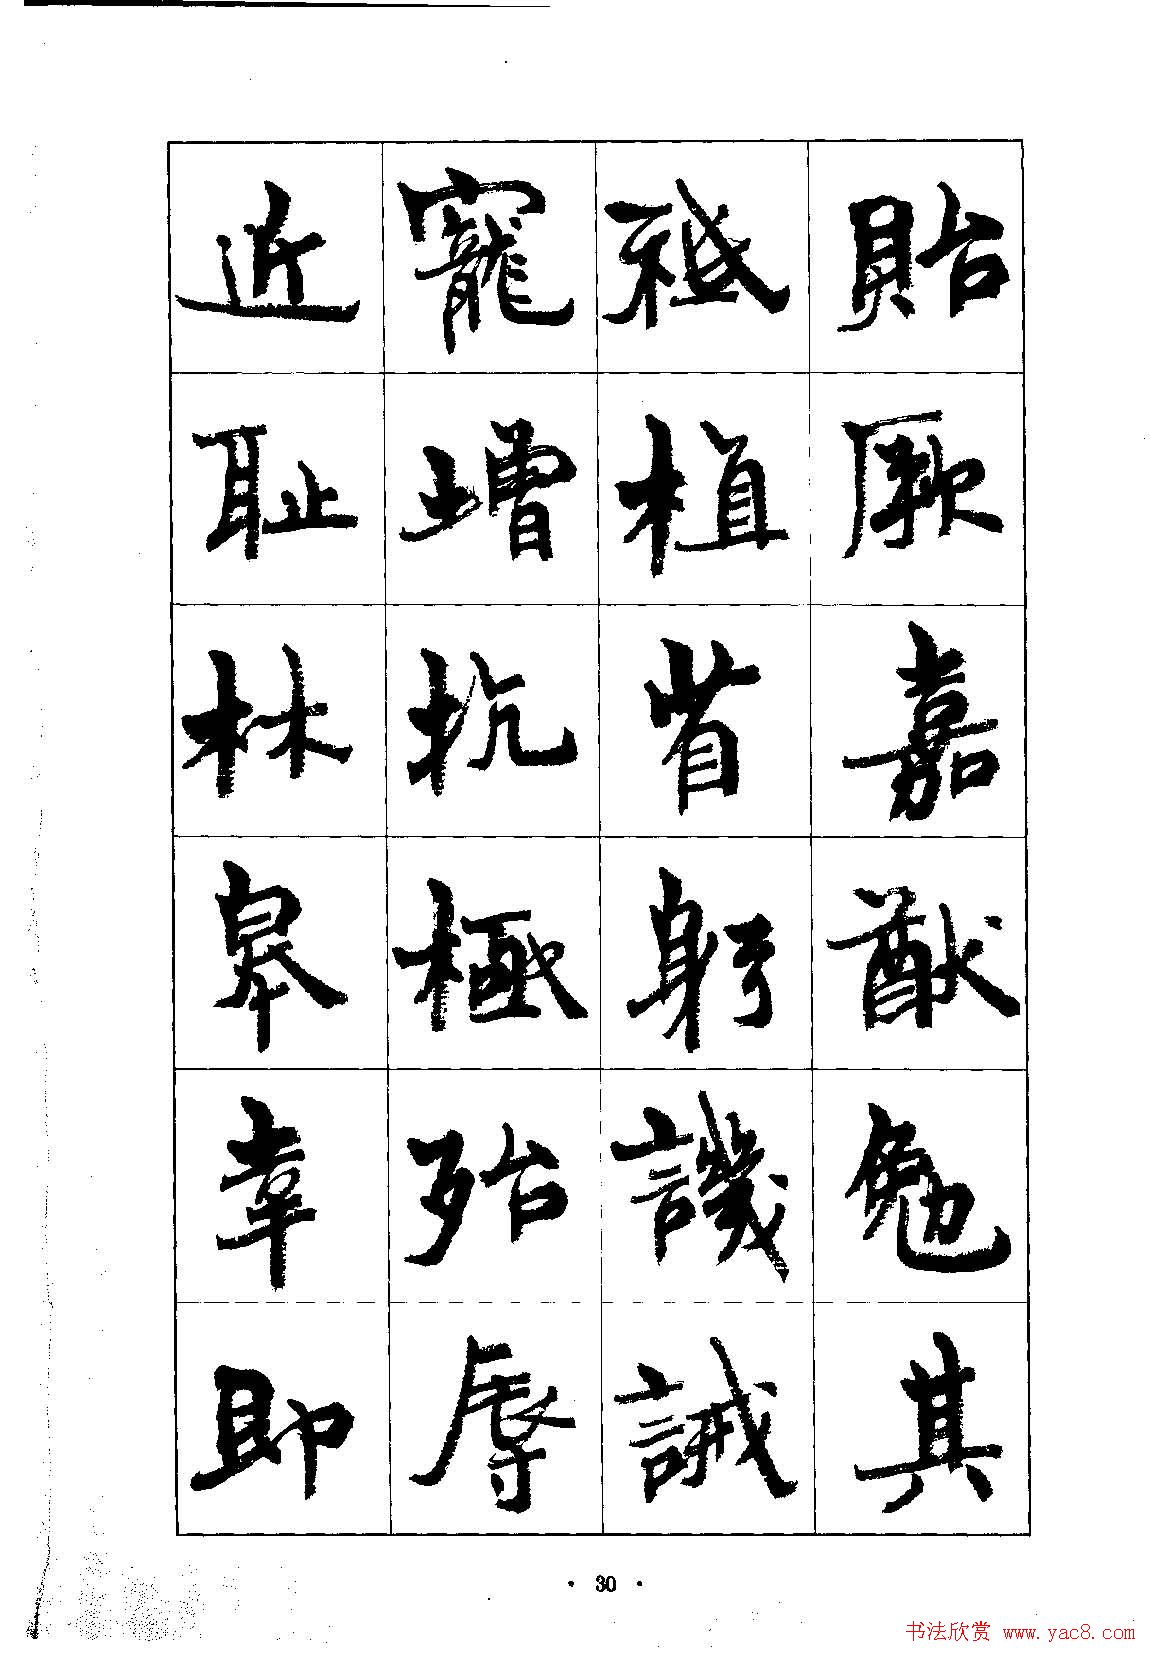 貽厥嘉猷勉其
祗植省躬譏誡
寵增抗極殆辱
近恥林皋幸即
· 30 ·
书法欣赏 www.yac8.com